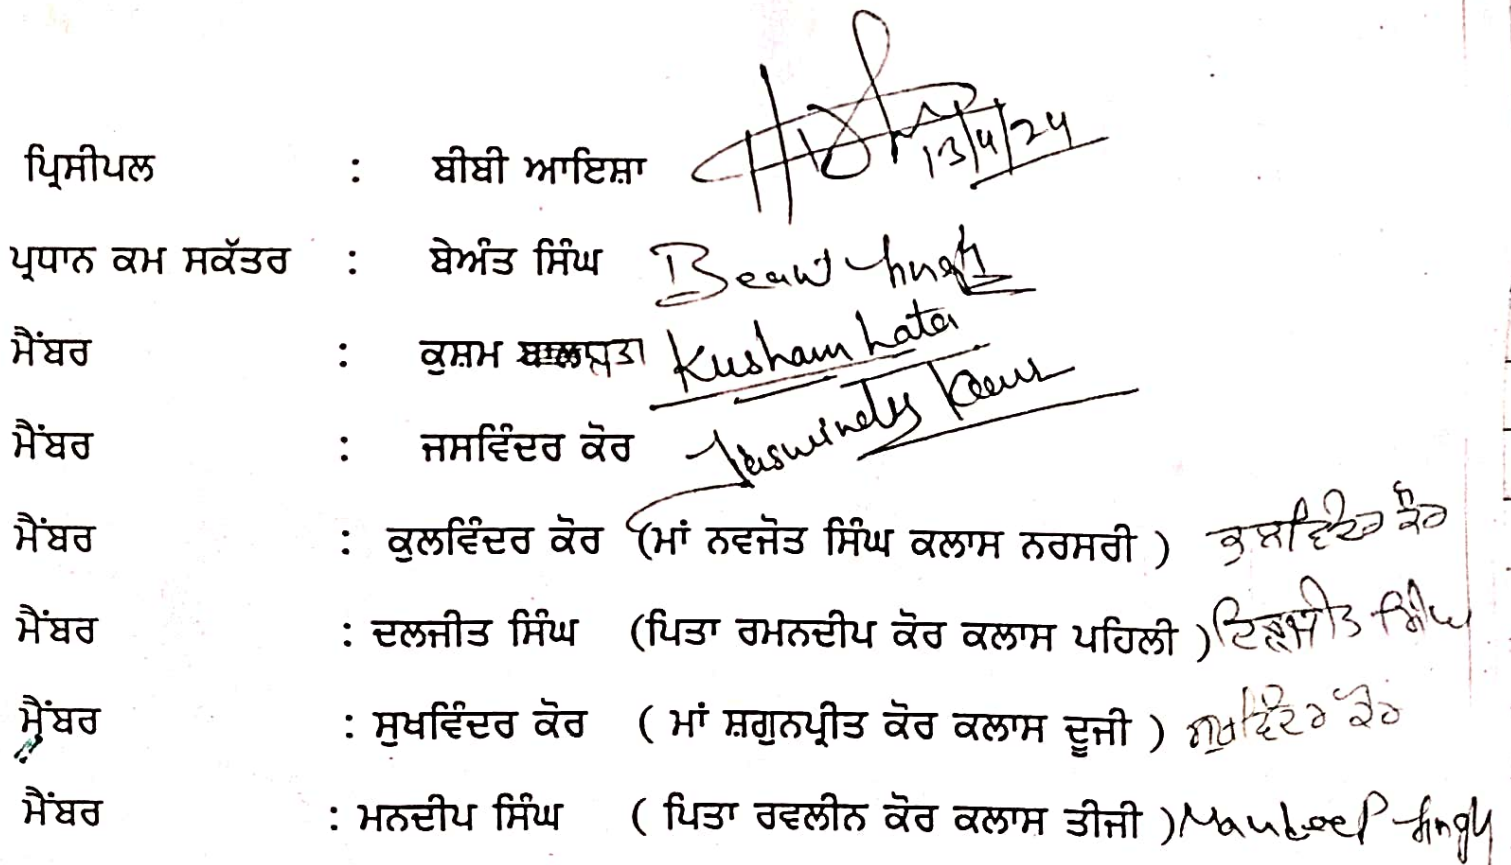 ਪ੍ਰਿਸੀਪਲ : ਬੀਬੀ ਆਇਸ਼ਾ 13/4/24
ਪ੍ਰਧਾਨ ਕਮ ਸਕੱਤਰ : ਬੇਅੰਤ ਸਿੰਘ Beant Singh
ਮੈਂਬਰ : ਕੁਸ਼ਮ ਲਤਾ Kusham Lata
ਮੈਂਬਰ : ਜਸਵਿੰਦਰ ਕੋਰ Jaswinder Kaur
ਮੈਂਬਰ : ਕੁਲਵਿੰਦਰ ਕੋਰ (ਮਾਂ ਨਵਜੋਤ ਸਿੰਘ ਕਲਾਸ ਨਰਸਰੀ ) ਕੁਲਵਿੰਦਰ ਕੌਰ
ਮੈਂਬਰ : ਦਲਜੀਤ ਸਿੰਘ (ਪਿਤਾ ਰਮਨਦੀਪ ਕੋਰ ਕਲਾਸ ਪਹਿਲੀ ) ਸਿੰਘ
ਮੈਂਬਰ : ਸੁਖਵਿੰਦਰ ਕੋਰ ( ਮਾਂ ਸ਼ਗੁਨਪ੍ਰੀਤ ਕੋਰ ਕਲਾਸ ਦੂਜੀ ) ਸੁਖਵਿੰਦਰ ਕੌਰ
ਮੈਂਬਰ : ਮਨਦੀਪ ਸਿੰਘ ( ਪਿਤਾ ਰਵਲੀਨ ਕੋਰ ਕਲਾਸ ਤੀਜੀ ) Mandeep Singh